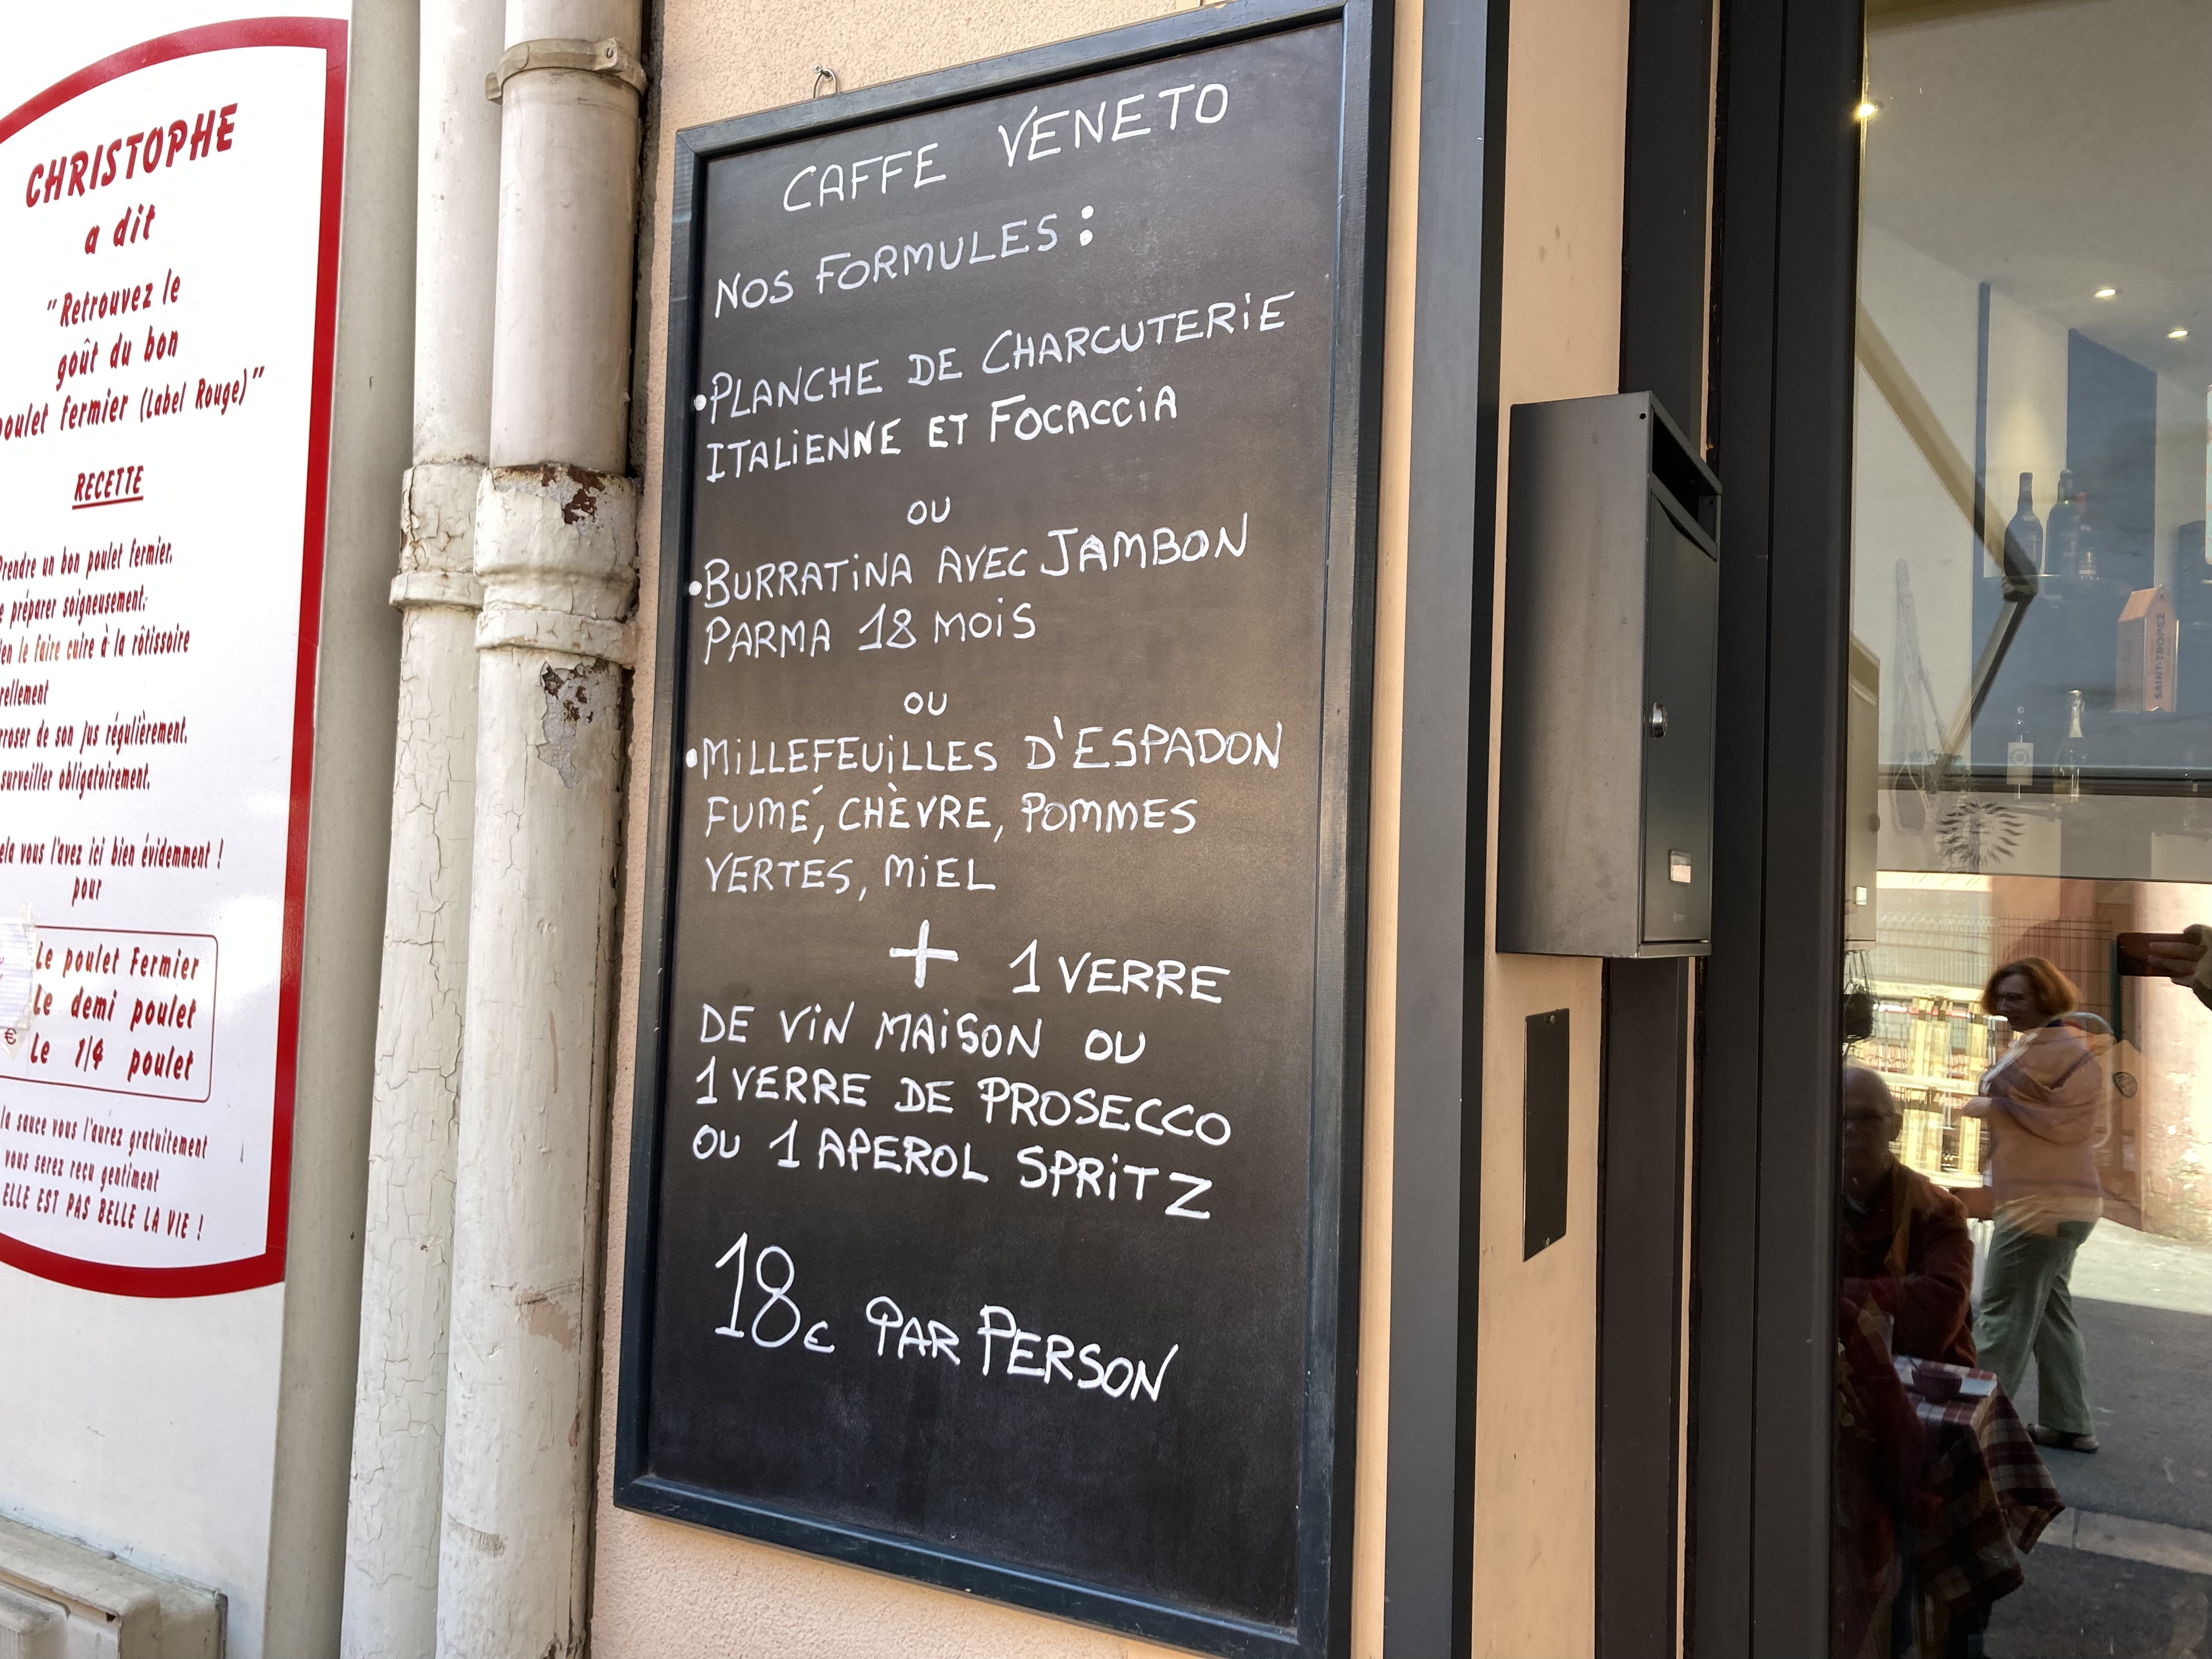 CHRISTOPHE
a dit
"Retrouvez le
goût du bon
poulet fermier (Label Rouge)"
RECETTE
Prendre un bon poulet fermier,
préparer soigneusement;
le faire cuire à la rôtissoire
de son jus régulièrement.
surveiller obligatoirement.
vous l'avez ici bien évidemment !
pour
Le poulet Fermier
Le demi poulet
€ Le 1/4 poulet
la sauce vous l'aurez gratuitement
vous serez reçu gentiment
ELLE EST PAS BELLE LA VIE !
CAFFE VENETO
NOS FORMULES :
•PLANCHE DE CHARCUTERIE
ITALIENNE ET FOCACCIA
OU
•BURRATINA AVEC JAMBON
PARMA 18 MOIS
OU
•MILLEFEUILLES D'ESPADON
FUMÉ, CHÈVRE, POMMES
VERTES, MIEL
+ 1 VERRE
DE VIN MAISON OU
1 VERRE DE PROSECCO
OU 1 APEROL SPRITZ
18€ PAR PERSON
SAINT-TROPEZ